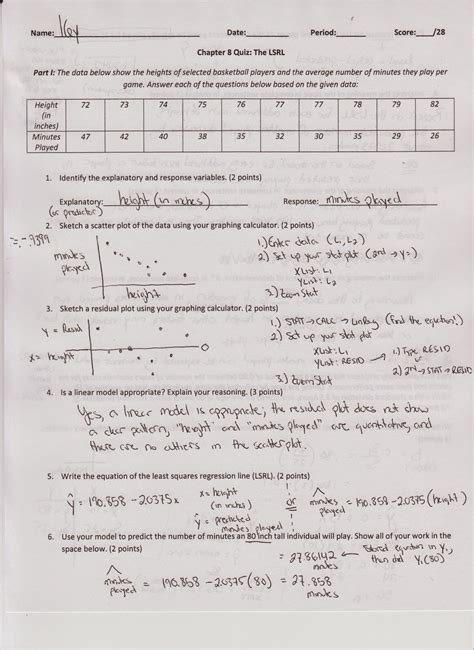 Name: Key Date: Period: Score: /28
Chapter 8 Quiz: The LSRL
Part I: The data below show the heights of selected basketball players and the average number of minutes they play per
game. Answer each of the questions below based on the given data:
Height (in inches) 72 73 74 75 76 77 77 78 78 79 82
Minutes Played 47 42 40 38 35 32 30 35 29 28 26
1. Identify the explanatory and response variables. (2 points)
Explanatory: height (in inches) Response: minutes played
(or predictor)
2. Sketch a scatter plot of the data using your graphing calculator. (2 points)
r = -.9399
minutes played
height
1.) Enter data (L1, L2)
2) Set up your stat plot (2nd → y=)
XList: L1
YList: L2
3.) Zoom Stat
3. Sketch a residual plot using your graphing calculator. (2 points)
y = Resid
x = height
0
1.) STAT → CALC → LinReg (Find the equation!)
2) Set up your stat plot
XList: L1
YList: RESID
1.) Type RESID
or
2) 2nd → STAT → RESID
3.) Zoom Stat
4. Is a linear model appropriate? Explain your reasoning. (3 points)
Yes, a linear model is appropriate; the residual plot does not show
a clear pattern, "height" and "minutes played" are quantitative, and
there are no outliers in the scatterplot.
5. Write the equation of the least squares regression line (LSRL). (2 points)
ŷ = 190.858 - 2.0375x
x = height (in inches)
ŷ = predicted minutes played
or minutes = 190.858 - 2.0375 (height)
6. Use your model to predict the number of minutes an 80 inch tall individual will play. Show all of work in the
space below. (2 points)
minutes played = 190.858 - 2.0375 (80) = 27.858 minutes
= 27.86142 ← Stored equation in Y1, then did Y1(80)